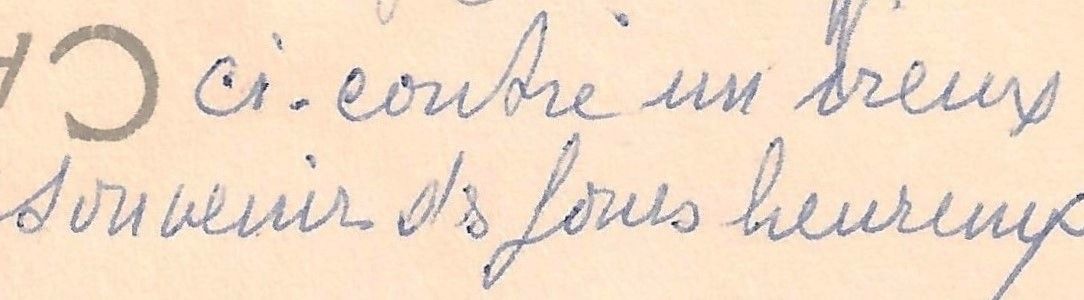 ci-contre un vieux
souvenir des jours heureux